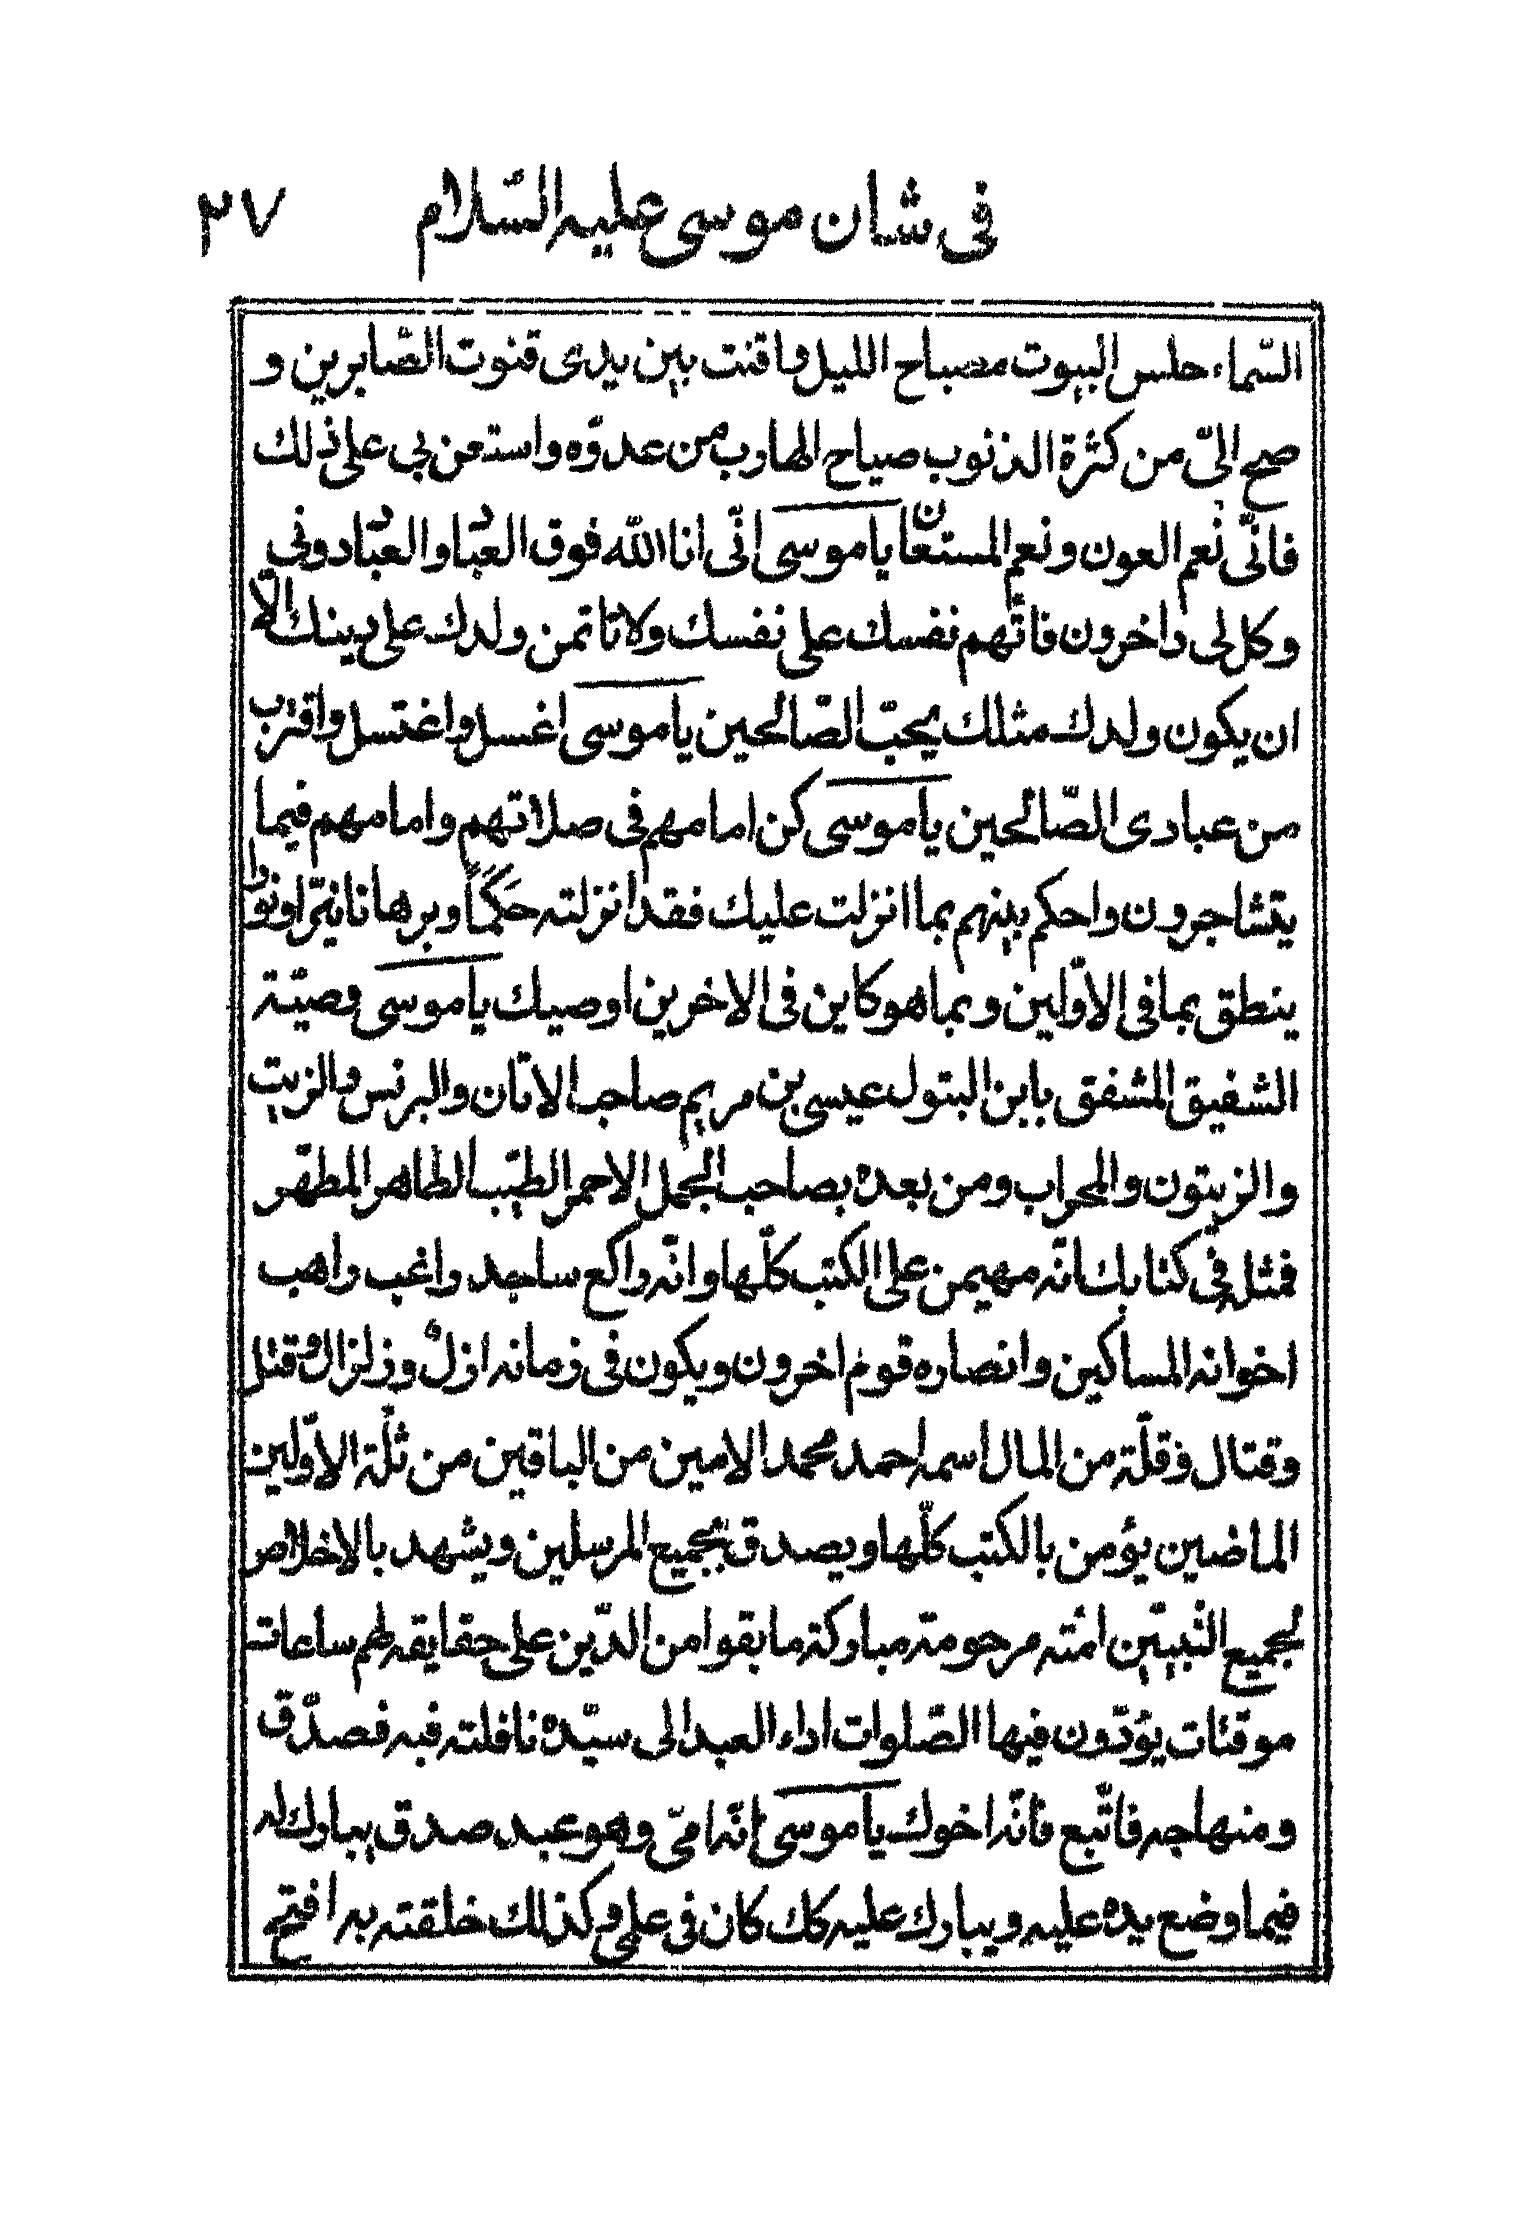 فى شان موسى عليه السّلام ٢٧
السّماء حلس البيوت مصباح الليل واقنت بين يدى قنوت الصّابرين و
صح الىّ من كثرة الذنوب صياح الهارب من عدوّه واستعن بى على ذلك
فانّى نعم العون ونعم المستعان يا موسى انّى انا الله فوق العباد والعباد دونى
وكل لى داخرون فاتّهم نفسك على نفسك ولا تاتمن ولدك على دينك الّا
ان يكون ولدك مثلك يحبّ الصّالحين يا موسى اغسل واغتسل واقترب
من عبادى الصّالحين يا موسى كن امامهم فى صلاتهم وامامهم فيما
يتشاجرون واحكم بينهم بما انزلت عليك فقد انزلته حكماً وبرهانا نيّرا ونورا
ينطق بما فى الاوّلين وبما هو كاين فى الاخرين اوصيك يا موسى وصيّة
الشفيق المشفق بابن البتول عيسى بن مريم صاحب الاتان والبرنس والزيت
والزيتون والمحراب ومن بعده بصاحب الجمل الاحمر الطيّب الطاهر المطهّر
فمثله فى كتابك انّه مهيمن على الكتب كلّها وانّه راكع ساجد راغب راهب
اخوانه المساكين وانصاره قوم اخرون ويكون فى زمانه ازل وزلزال وقتل
وقتال وقلّة من المال اسمه احمد محمد الامين من الباقين من ثلّة الاوّلين
الماضين يؤمن بالكتب كلّها ويصدق بجميع المرسلين ويشهد بالاخلاص
لجميع النّبيّين امّته مرحومة مباركة ما بقوا من الدّين على حقايقه لهم ساعات
موقتات يؤدّون فيها الصّلوات اداء العبد الى سيّده نافلته فبه فصدّق
ومنهاجه فاتّبع فانّه اخوك يا موسى انّه امّى وهو عبد صدق يبارك له
فيما وضع يده عليه ويبارك عليه كك كان فى علمى وكذلك خلقته به افتح